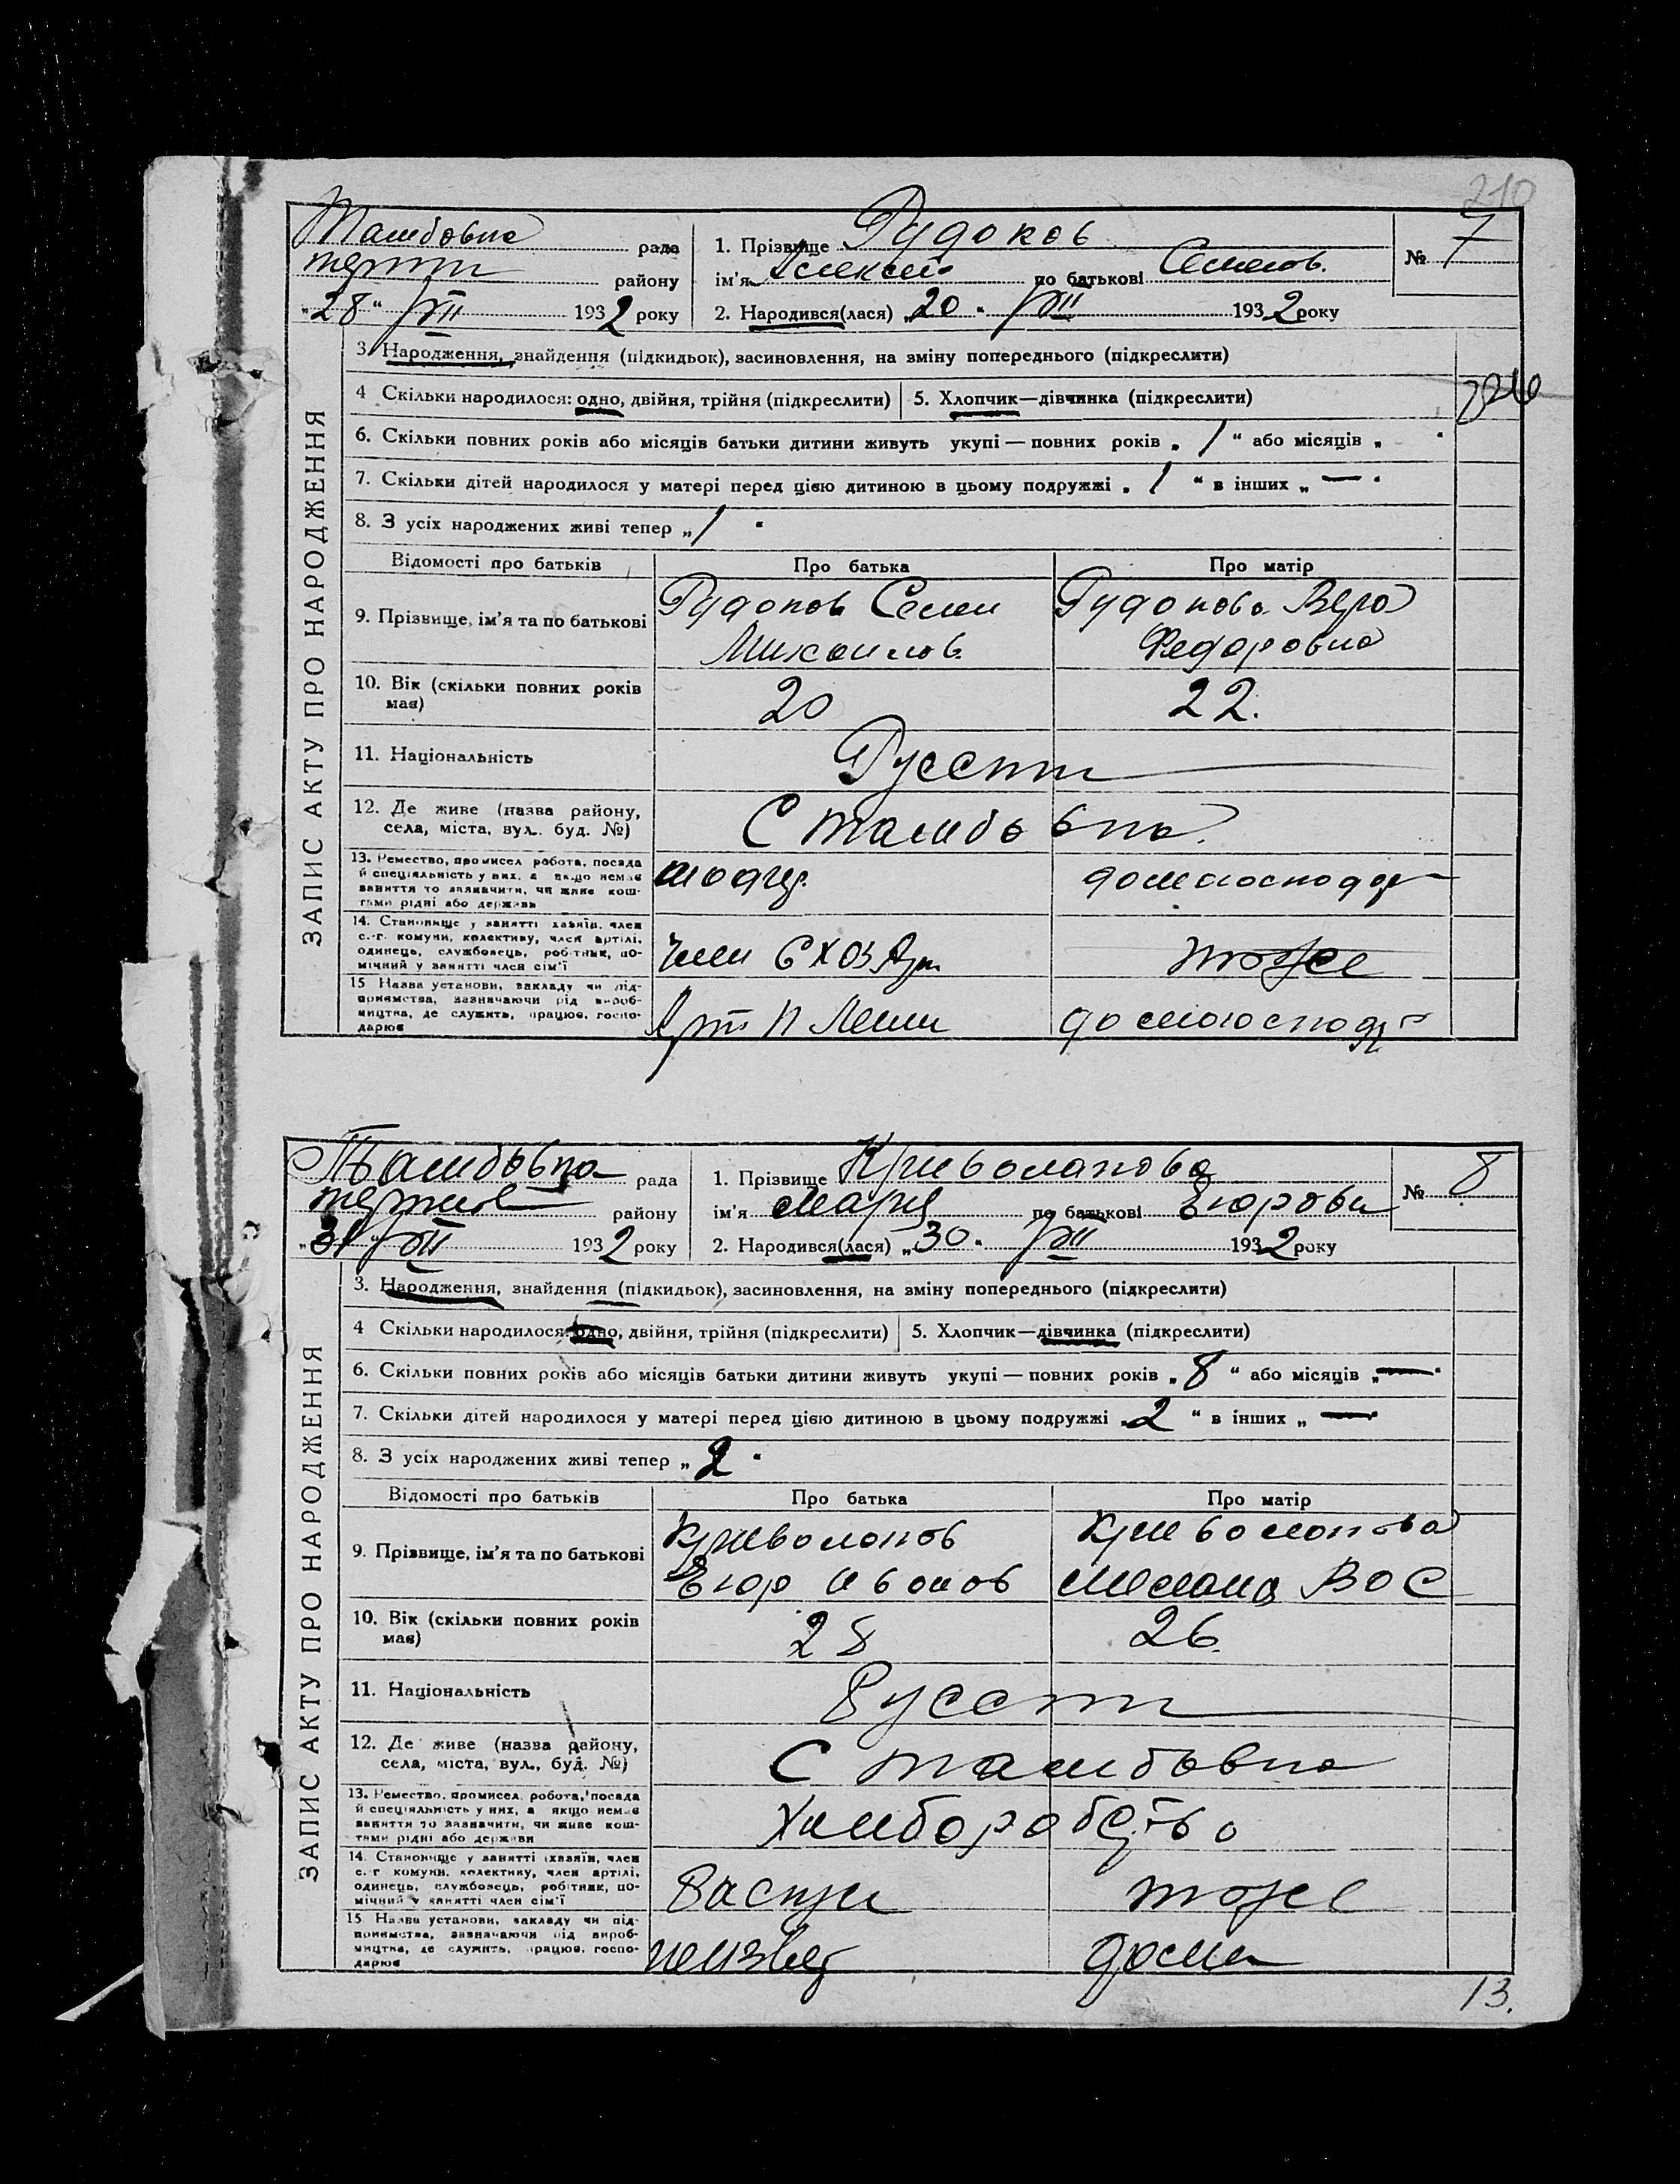 210
Тамбовка рада
1. Прізвище Рудаков
№ 7
району
ім'я Алексей по батькові Семенов.
„28“ VII 1932 року
2. Народився(лася) „20“ VII 1932 року
3. Народження, знайдення (підкидьок), засиновлення, на зміну попереднього (підкреслити)
4 Скільки народилося: одно, двійня, трійня (підкреслити)
5. Хлопчик—дівчинка (підкреслити)
6. Скільки повних років або місяців батьки дитини живуть укупі — повних років „ 1 “ або місяців „ “
7. Скільки дітей народилося у матері перед цією дитиною в цьому подружжі „ 1 “ в інших „ — “
8. З усіх народжених живі тепер „ 1 “
ЗАПИС АКТУ ПРО НАРОДЖЕННЯ
Відомості про батьків Про батька Про матір
9. Прізвище, ім'я та по батькові
Рудаков Семен
Михаилов.
Рудакова Вера
Федоровна
10. Вік (скільки повних років
має)
20
22.
11. Національність
Русский
12. Де живе (назва району,
села, міста, вул. буд. №)
С Тамбовка
13. Ремество, промисел робота, посада
й спеціяльність у них, а якщо немає
заняття то зазначити, чи живе кош-
тами рідні або держави
домогоспода
14. Становище у занятті хазяїн, член
с.-г. комуни, колективу, член артілі,
одинець, службовець, робітник, по-
мічний у занятті член сім'ї
член СХОЗ Арт
тоже
15 Назва установи, закладу чи під-
приємства, зазначаючи рід вироб-
ництва, де служить, працює, госпо-
дарює
Арт
домогосподр
Тамбовка рада
1. Прізвище Криволапова
№ 8
району
ім'я Мария по батькові Егорови
„31“ VII 1932 року
2. Народився(лася) „30“ VII 1932 року
3. Народження, знайдення (підкидьок), засиновлення, на зміну попереднього (підкреслити)
4 Скільки народилося: одно, двійня, трійня (підкреслити)
5. Хлопчик—дівчинка (підкреслити)
6. Скільки повних років або місяців батьки дитини живуть укупі — повних років „ 8 “ або місяців „ — “
7. Скільки дітей народилося у матері перед цією дитиною в цьому подружжі „ 2 “ в інших „ — “
8. З усіх народжених живі тепер „ 2 “
ЗАПИС АКТУ ПРО НАРОДЖЕННЯ
Відомості про батьків Про батька Про матір
9. Прізвище, ім'я та по батькові
Криволапов
Егор Иванов
Криволапова
Мелания Вос
10. Вік (скільки повних років
має)
28
26.
11. Національність
Русский
12. Де живе (назва району,
села, міста, вул., буд. №)
С Тамбовка
13. Ремество, промисел, робота, посада
й спеціяльність у них, а якщо немає
заняття то зазначити, чи живе кош-
тами рідні або держави
Хлиборобство
14. Становище у занятті (хазяїн, член
с.-г комуни, колективу, член артілі,
одинець, службовець, робітник, по-
мічний у занятті член сім'ї
тоже
15 Назва установи, закладу чи під-
приємства, зазначаючи рід вироб-
ництва, де служить, працює, госпо-
дарює
неизвес
доми
13.